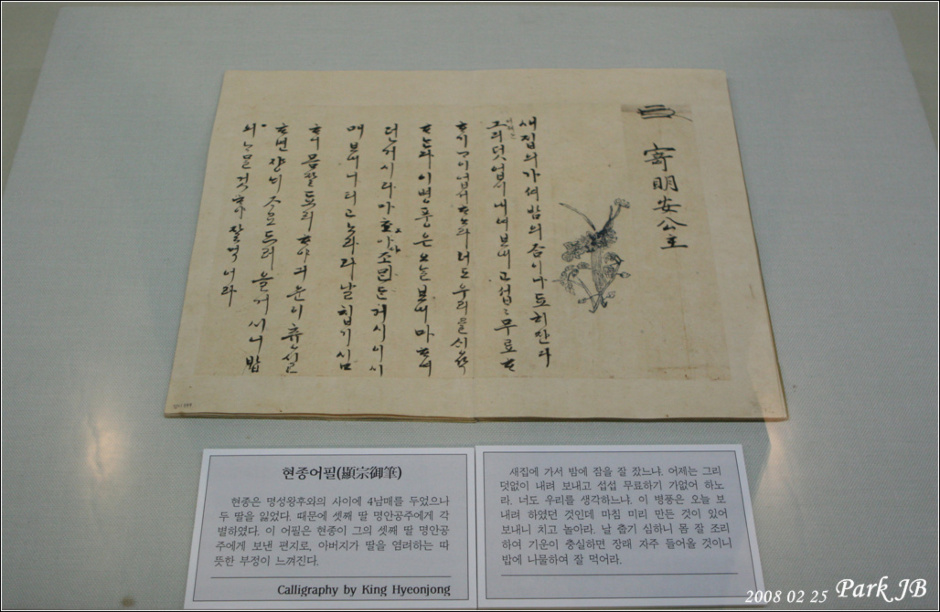 寄明安公主
새집의가셔밤의줌이나됴히잔다
그리덧업시내여보내고섭섭무료ᄒᆞ
ᄒᆞ노라너도우리를ᄉᆡᆼ각
ᄒᆞᄂᆞᆫ다이병풍은오ᄂᆞᆯ보내마ᄒᆞ여
거시이시
매보내니티고노라라날칩기심
ᄒᆞ니몸잘됴리ᄒᆞ야긔운이츙실
ᄒᆞ면쟝ᄂᆡᄌᆞ조드러올거시니밥
잘먹어라
현종어필(顯宗御筆)
현종은 명성왕후와의 사이에 4남매를 두었으나
두 딸을 잃었다. 때문에 셋째 딸 명안공주에게 각
별하였다. 이 어필은 현종이 그의 셋째 딸 명안공
주에게 보낸 편지로, 아버지가 딸을 염려하는 따
뜻한 부정이 느껴진다.
Calligraphy by King Hyeonjong
새집에 가서 밤에 잠을 잘 잤느냐. 어제는 그리
덧없이 내려 보내고 섭섭 무료하기 가없어 하노
라. 너도 우리를 생각하느냐. 이 병풍은 오늘 보
내려 하였던 것인데 마침 미리 만든 것이 있어
보내니 치고 놀아라. 날 춥기 심하니 몸 잘 조리
하여 기운이 충실하면 장래 자주 들어올 것이니
밥에 나물하여 잘 먹어라.
2008 02 25 Park JB